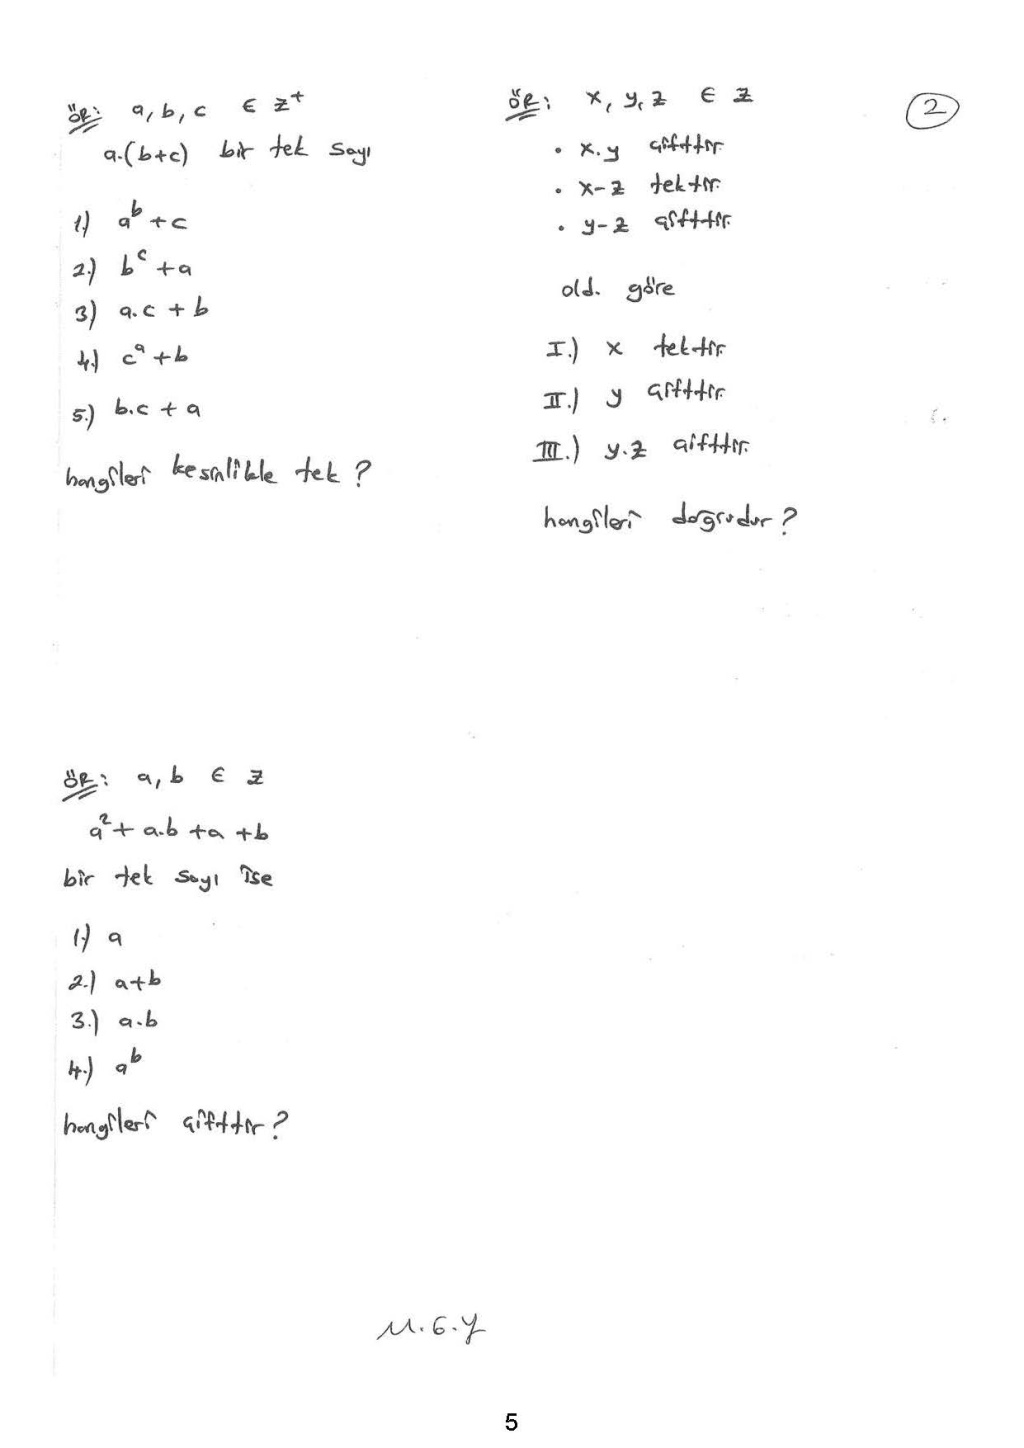 ÖR: a, b, c ∈ Z⁺
a.(b+c) bir tek sayı
1.) aᵇ + c
2.) bᶜ + a
3.) a.c + b
4.) cᵃ + b
5.) b.c + a
hangileri kesinlikle tek ?
ÖR: x, y, z ∈ Z
• x.y çifttir.
• x-z tektir.
• y-z çifttir.
old. göre
I.) x tektir.
II.) y çifttir.
III.) y.z çifttir.
hangileri doğrudur ?
2
ÖR: a, b ∈ Z
a² + a.b + a + b
bir tek sayı ise
1.) a
2.) a+b
3.) a.b
4.) aᵇ
hangileri çifttir ?
M.G.Y
5